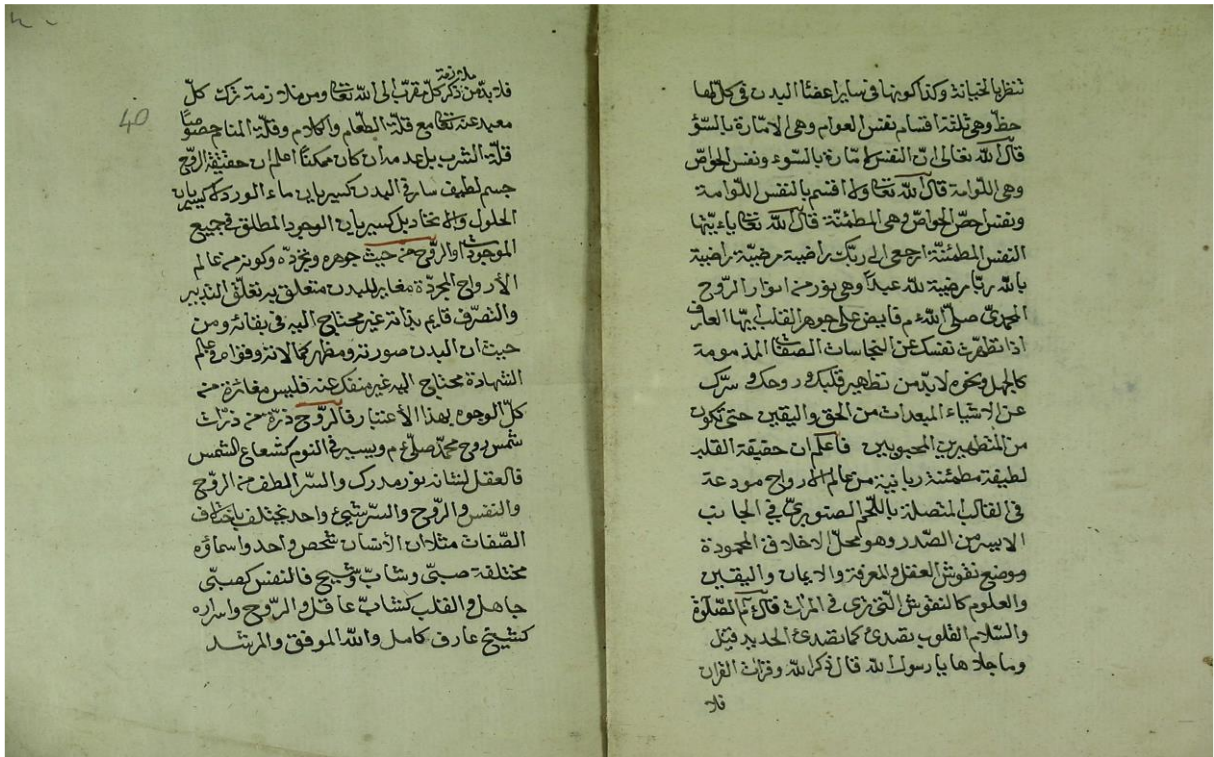 تنظر بالخيانة وكذا كونها في ساير اعضٔا البدن في كل لها
حظ وهي ثلثة اقسام نفس العوام وهي الامّارة بالسّؤ
قال الله تعالى انّ النفس لامّارة بالسّوء ونفس الخواصّ
وهي اللّوامة قال الله تعا ولا اقسم بالنفس اللّوامة
ونفس اخصّ الخواصّ وهي المطمئنّة قال الله تعا ياءيّتها
النفس المطمئنّة ارجعي الى ربّك راضية مرضيّة راضية
بالله ربّا مرضية لله عبداً وهي نور من انوار الرّوح
المحمديّ صلّى الله ع م فايض على جوهر القلب ايّها العارف
اذا تطهّرت نفسك عن النجاسات الصفات المذمومة
كالجهل ونحوه لابدّ من تطهير قلبك وروحك وسرّك
عن الاشياء المبعدات من الحق واليقين حتى تكون
من المتطهرين المحبوبين فاعلم ان حقيقة القلب
لطيفة مطمئنة ربانية من عالم الارواح مودعة
في القالب المتصلة باللّحم الصنوبريّ في الجانب
الايسر من الصّدر وهو محلّ الاخلاق المحمودة
وموضع نقوش العقل والمعرفة والايمان واليقين
والعلوم كالنقوش الّتي ترى في المرات قال ع م الصّلوة
والسّلام القلوب تصدئ كما تصدئ الحديد قيل
وما جلاها يا رسول الله قال ذكر الله وقرات القران
فلا
40
ملازمة
فلا بدّ من ذكر كلّ مقرّب الى الله تعا ومن ملازمة ترك كلّ
مبعد عنه تعا مع قلّة الطّعام والكلام وقلّة المنام خصوصًا
قلّة الشرب بل عدمه ان كان ممكناً اعلم ان حقيقة الرّوح
جسم لطيف سار في البدن كسريان ماء الورد لا كسريان
الحلول والاتحاد بل كسريان الوجود المطلق في جميع
الموجودات والرّوح من حيث جوهره وتجرّده وكونه من عالم
الأرواح المجرّدة مغاير للبدن متعلق به تعلّق التدبير
والتصرّف قايم بذاته غير محتاج اليه في بقائه ومن
حيث ان البدن صورته ومظهر كمالاته وقواه في عالم
الشهادة محتاج اليه غير منفك عنه فليس مغائرة من
كلّ الوجوه بهذا الأعتبار فالرّوح ذرّة من ذرّات
شمس روح محمّد صلّى ع م ويسير في النوم كشعاع الشمس
فالعقل لسانه نور مدرك والسّرّ الطف من الرّوح
والنفس والرّوح والسّرّ شيئ واحد يختلف باختلاف
الصّفات مثلا ان الأنسان شخص واحد واسماؤه
مختلفة صبيّ وشابّ وشيخ فالنفس كصبيّ
جاهل والقلب كشابّ عاقل والرّوح واسراره
كشيخ عارف كامل والله الموفق والمرشد